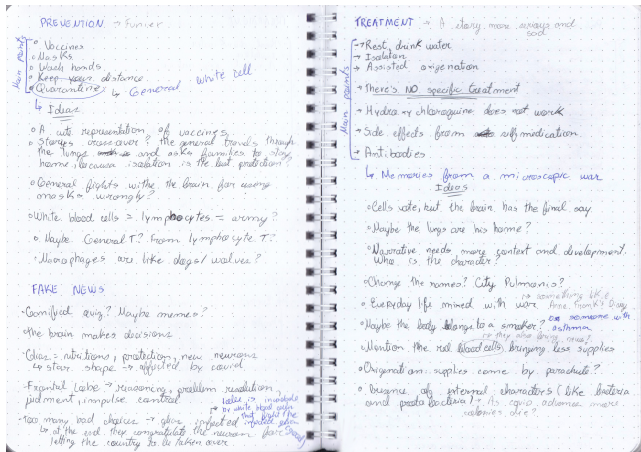 PREVENTION → Funnier
Main points
• Vaccines
• Masks
• Wash hands
• Keep your distance
• Quarantine ↳ General White Cell
↳ Ideas
• A cute representation of vaccines
• Stories crossover? the general travels through
the lungs and asks families to stay
home, because isolation is the best protection?
• General fights withe the brain for using
masks wrongly?
• White blood cells = lymphocytes = army?
• Maybe General T? From lymphocyte T?
• Macrophages are like dogs/wolves?
FAKE NEWS
• Gamified quiz? Maybe memes?
• The brain makes decisions
• Glias = nutritions, protection, new neurons
↳ star shape → affected by covid
• Frontal lobe → reasoning, problem resolution,
judment, impulse control
• Too many bad choices → glias infected
↳ at the end they congratulate the neuron for
letting the country to be taken over
TREATMENT → A story more serious and
sad
Main points
→ Rest, drink water
→ Isolation
→ Assisted oxigenation
→ There's NO specific treatment
→ Hydroxychloroquine does not work
→ Side effects from selfmedication
→ Antibodies
↳ Memories from a microscopic war
Ideas
• Cells vote, but the brain has the final say
• Maybe the lungs are his home?
• Narrative needs more context and development.
Who is the character?
• Change the names? City Pulmonis?
↳ something like
Anne Frank's Diary
• Everyday life mixed with war
• Maybe the body belongs to a smoker? or someone with
asthma
• Mention the red blood cells, bringing less supplies
• Oxigenation: supplies come by parachute?
• Presence of external characters (like bacteria
and protobacteria)? As covid advances more
colonies die?